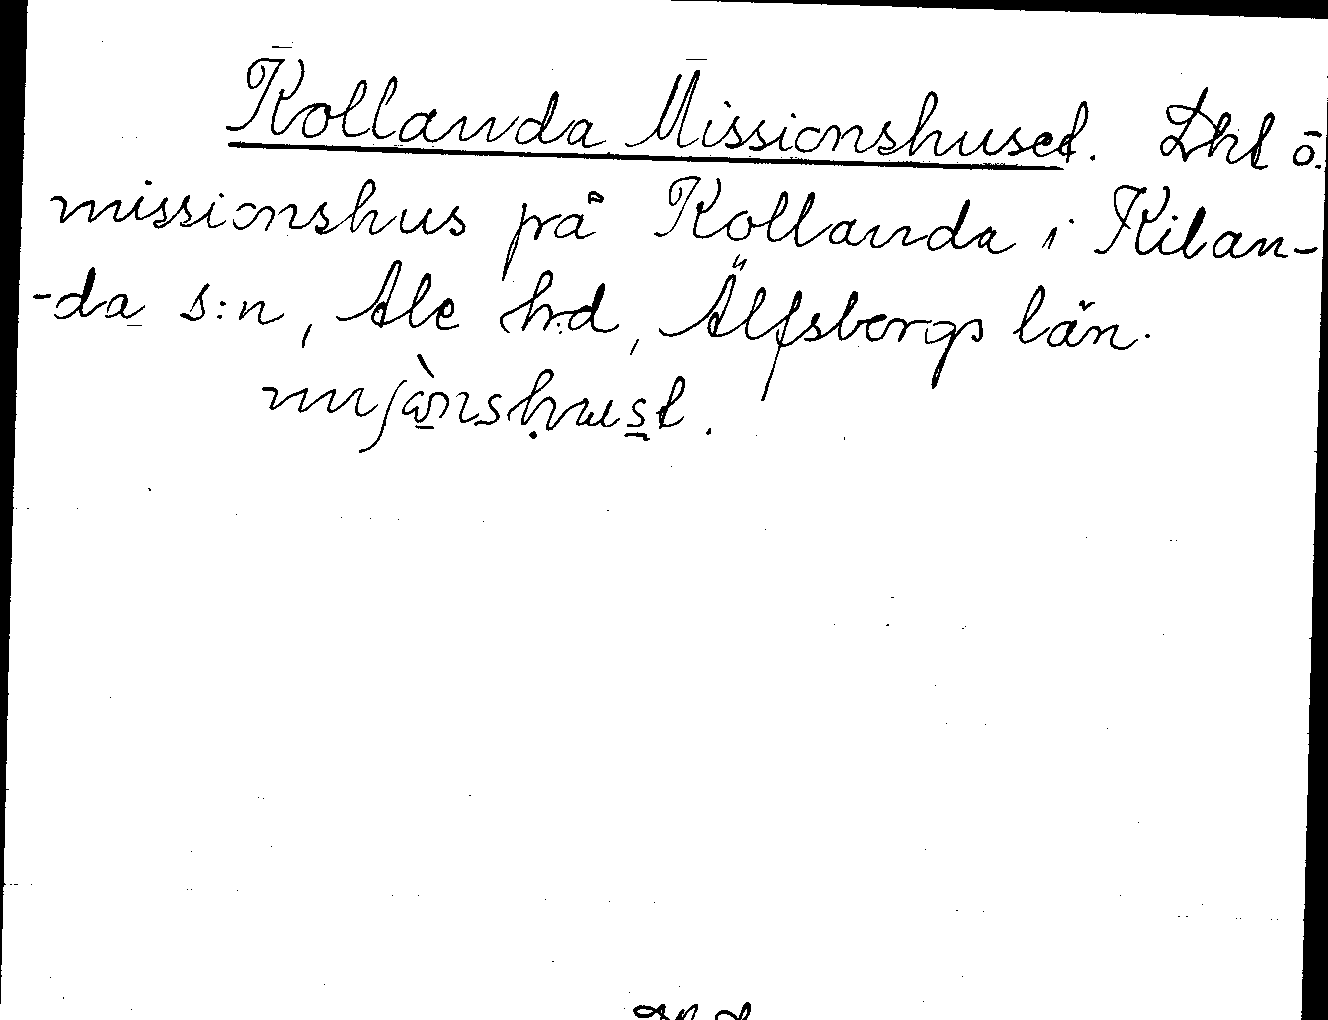 Kollanda Missionshuset. Lht ö.
missionshus på Kollanda i Kilan-
-da s:n, Ale hd, Älfsborgs län.